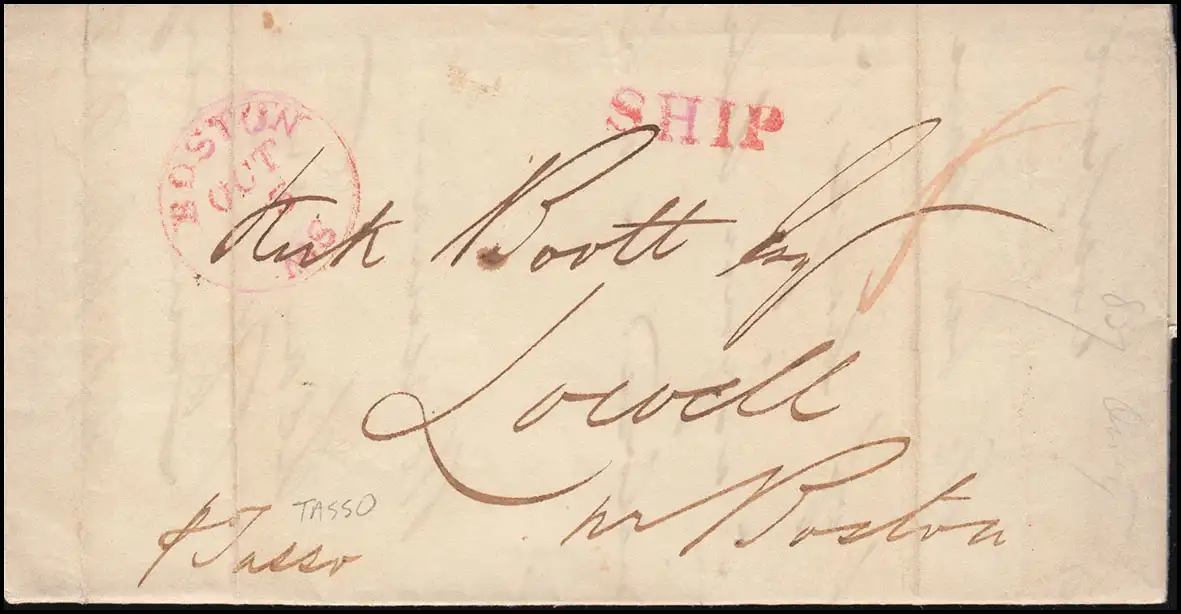 BOSTON
OCT
MS
SHIP
Kirk Boott Esq
Lowell
nr Boston
TASSO
p Tasso